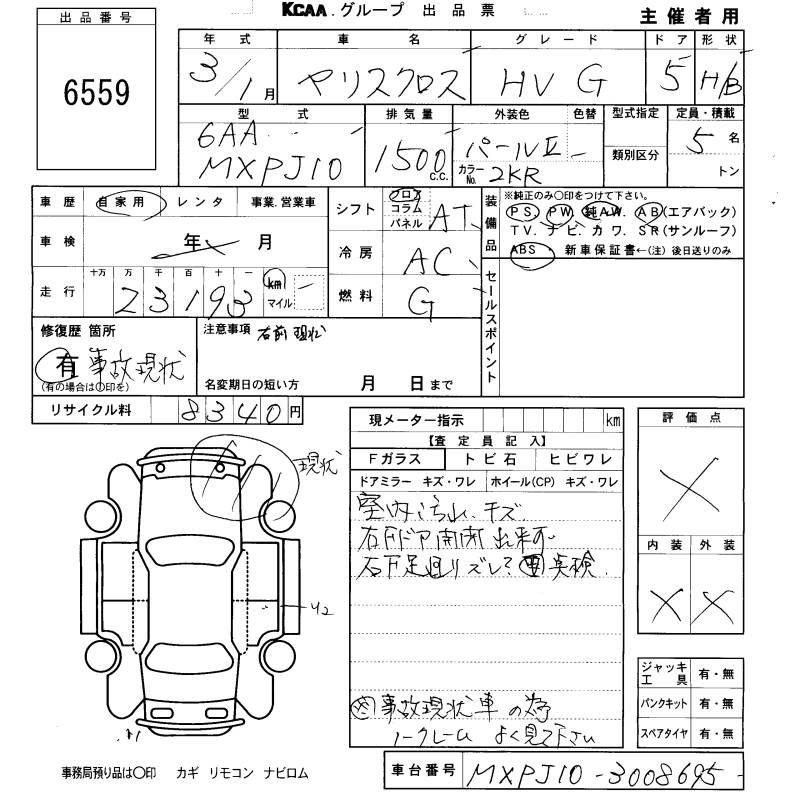 KCAA.グループ 出品票
主催者用
出品番号
6559
年式 車名 グレード ドア 形状
3/1月 ヤリスクロス HV G 5 H/B
型式 排気量 外装色 色替 型式指定 定員・積載
6AA 1500 C.C. パールⅡ - 5名
MXPJ10 カラーNo. 2KR 類別区分 トン
車歴 自家用 レンタ 事業.営業車
車検 年 月
走行 十万 万 千 百 十 一
23193 km マイル -
シフト フロア コラム パネル AT
冷房 AC
燃料 G
装備品 ※純正のみ○印をつけて下さい。
PS. PW. 純AW. AB(エアバック)
TV. ナビ. カワ. SR(サンルーフ)
ABS ・ 新車保証書←(注)後日送りのみ
セールスポイント
修復歴 箇所
有 事故現状
(有の場合は○印を)
注意事項 右前 現状
名変期日の短い方 月 日まで
リサイクル料 8340円
現メーター指示 km
【査定員記入】
Fガラス トビ石 ヒビワレ
ドアミラー キズ・ワレ ホイール(CP) キズ・ワレ
室内汚れ.キズ
右Fドア開閉出来不
右F足回りズレ? 要実検
事故現状車の為
ノークレーム よく見て下さい
現状
U2
A1
評価点
内装 外装
ジャッキ工具 有・無
パンクキット 有・無
スペアタイヤ 有・無
事務局預り品は○印 カギ リモコン ナビロム
車台番号 MXPJ10-3008695-